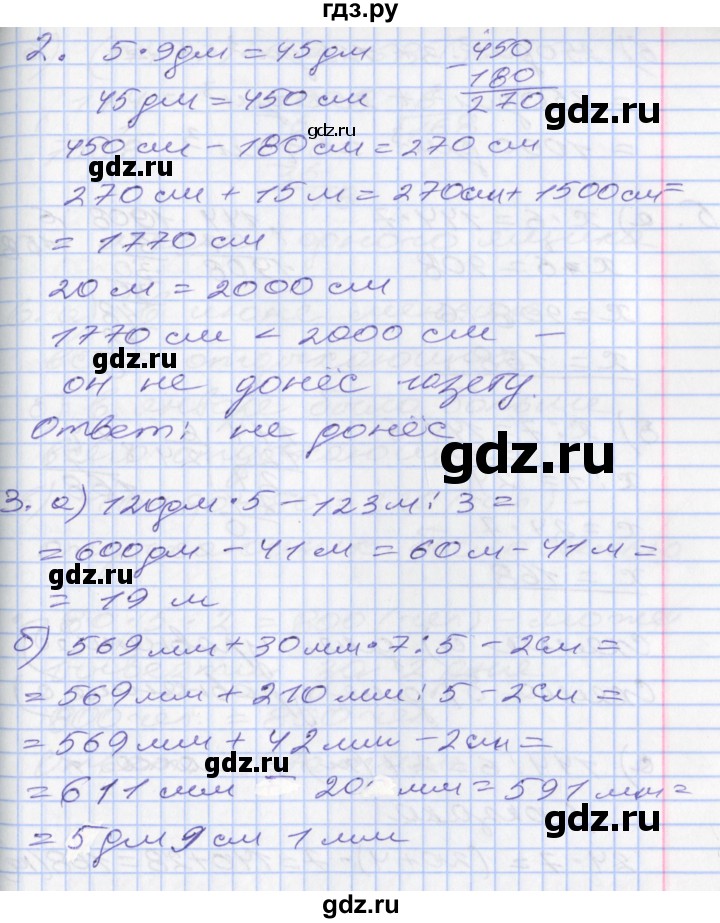 гдз.ру
2. 5·9дм = 45дм
45дм = 450 см
- 450
180
270
gdz.ru
gdz.ru
450 см - 180 см = 270 см
gdz.ru
270 см + 15 м = 270см + 1500 см =
= 1770 см
20 м = 2000 см
gdz.ru
1770 см < 2000 см —
gdz.ru
он не донёс газету.
Ответ: не донёс
gdz.ru
3. а) 120дм·5 - 123м : 3 =
= 600дм - 41 м = 60м - 41 м =
gdz.ru
= 19 м
gdz.ru
б) 569мм + 30мм·7:5 - 2см =
= 569мм + 210мм : 5 - 2см =
= 569мм + 42мм - 2см =
gdz.ru
= 611 мм - 20 мм = 591 мм =
gdz.ru
= 5дм 9 см 1 мм
gdz.ru
gdz.ru